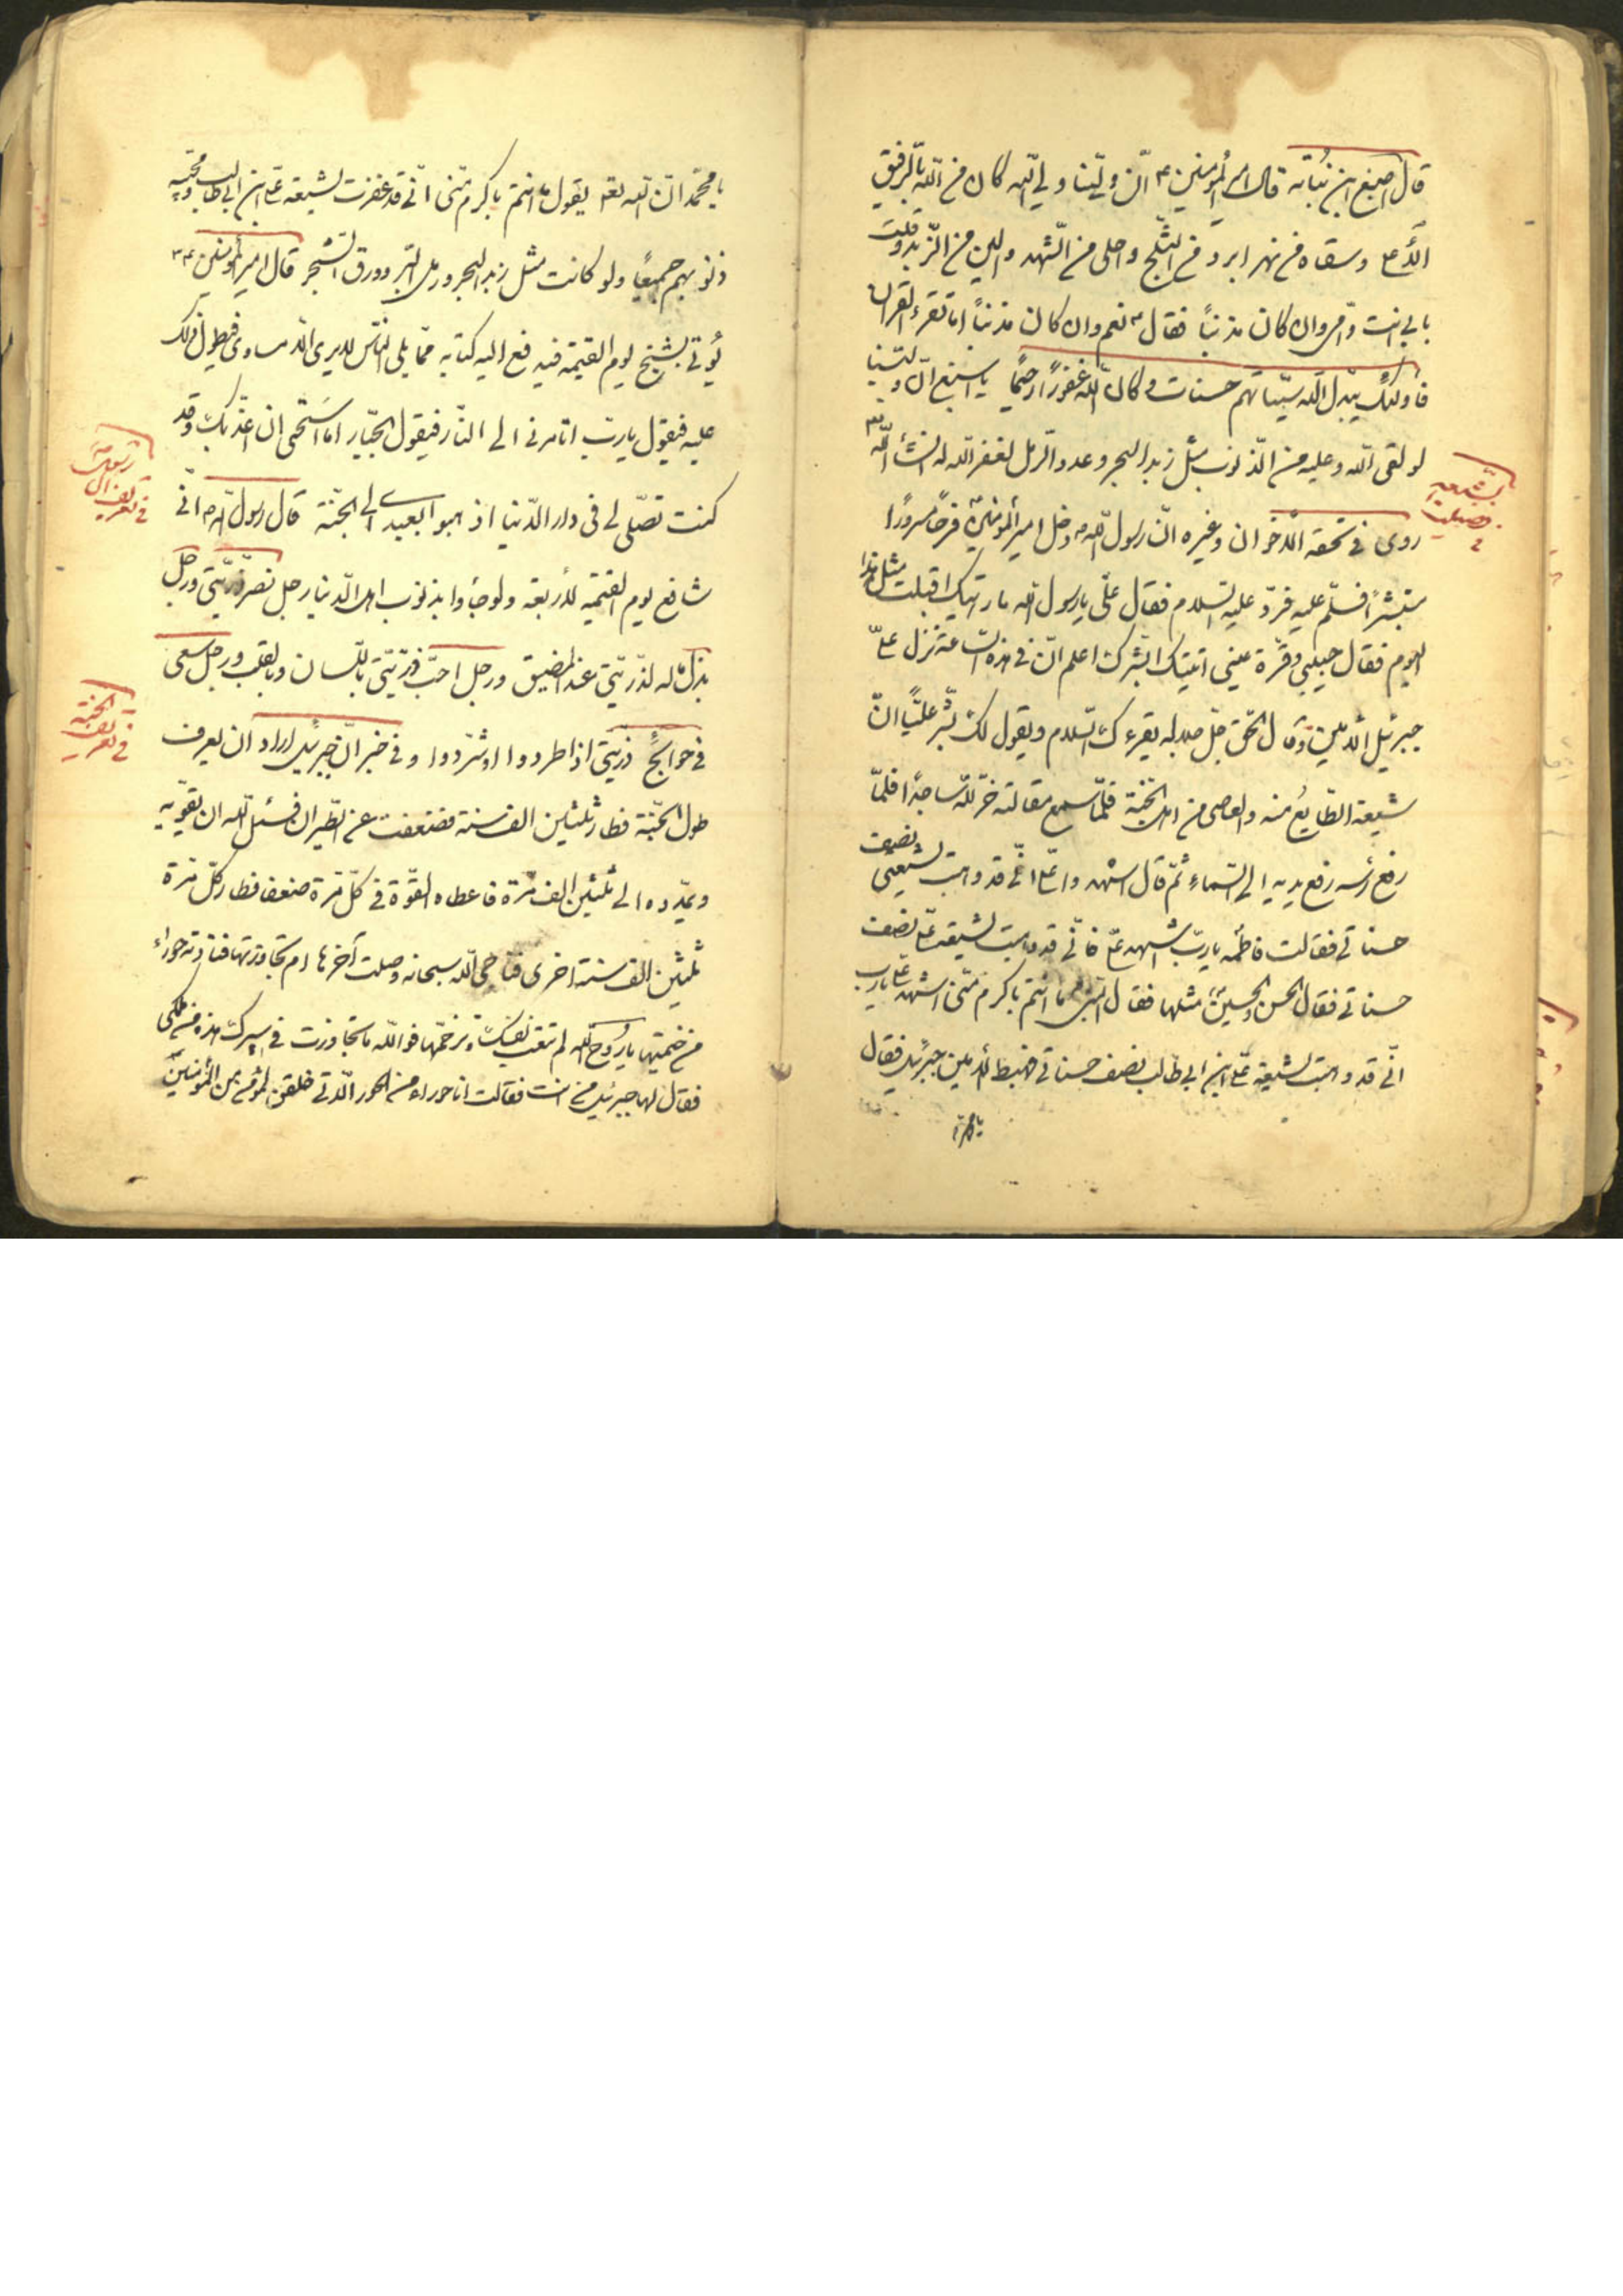 قال اصبغ ابن نباته قال امير المؤمنين ع انّ وليّنا ولي الله كان من الله بالرفيق
الأعلى وسقاه من نهر ابرد من الثلج واحلى من الشهد والين من الزبد وقلت
بابي انت وامّي وان كان مذنباً فقال ع نعم وان كان مذنباً اما تقرء القران
فاولئك يبدّل الله سيّئاتهم حسنات وكان الله غفورًا رحيمًا يا اصبغ انّ وليّنا
لو لقى الله وعليه من الذنوب مثل زبد البحر وعدد الرمل لغفر الله له انشاء الله
بشيعه
فضيلت
في
روى في تحفة الاخوان وغيره انّ رسول الله ص دخل امير المؤمنين فرحًا مسرورًا
مستبشرًا فسلّم عليه فردّ عليه السلام فقال علي يا رسول الله ما رايتك اقبلت مثل هذا
اليوم فقال حبيبي وقرّة عيني اتيتك ابشرك اعلم انّ في هذه الساعة نزل عليّ
جبرئيل الأمين وقال الحق جلّ جلاله يقرءك السلام ويقول لك بشّر عليًّا انّ
شيعة الطايع منه والعاصى من اهل الجنّة فلمّا سمع مقالته خرّ لله ساجدًا فلمّا
رفع رأسه رفع يديه الى السماء ثمّ قال اشهدوا عليّ انّي قد وهبت لشيعتي نصف
حسناتي فقالت فاطمه يا ربّ اشهد عليّ فانّي قد وهبت لشيعة علي نصف
حسناتي فقال الحسن والحسين مثلها فقال النبي ما انتم باكرم منّي اشهد عليّ يا رب
انّي قد وهبت لشيعة علي ابن ابي طالب نصف حسناتي فهبط الأمين جبرئيل فقال
يا محمد
يا محمّد انّ الله تعه يقول ما انتم باكرم منّي انّي قد غفرت لشيعة علي ابن ابي طالب ومحبّيه
ذنوبهم جميعًا ولو كانت مثل زبد البحر ورمل البر وورق الشجر قال امير المؤمنين ع
يُؤتى بشيخ يوم القيمة فيدفع اليه كتابه ممّا يلي الناس لا يرى الّا مساوى فيطول ذلك
عليه فيقول يا ربّ اتامرني الى النّار فيقول الجبّار اما استحى ان اعذّبك وقد
كنت تصلّى لى فى دار الدّنيا اذهبوا بعبدى الى الجنّة قال رسول الله ص انّي
شافع يوم القيمة لأربعة ولو جاؤا بذنوب اهل الدّنيا رجل نصر ذرّيّتي ورجل
بذل ماله لذرّيّتي عند المضيق ورجل احبّ ذرّيّتي باللّسان وبالقلب ورجل سعى
في حوايج ذرّيّتي اذا طردوا او شرّدوا وفي خبر انّ جبرئيل اراد ان يعرف
في تعريف الجنّة
طول الجنّة فطار ثلثين الف سنة فضعفت عن الطّيران فسئل الله ان يقوّيه
ويمدّده الى ثلثين الف مرّة فاعطاه القوّة في كلّ مرّة ضعف فطار كلّ مرّة
ثلثين الف سنة اخرى فناجى الله سبحانه وصلت آخرها ام تجاوزتها فنادته حوراء
من خيمتها يا روح الله لم تتعب نفسك وترحمّها فوالله ما تجاوزت في سيرك هذه من ملكى
فقال لها جبرئيل من انت فقالت انا حوراء من الحور الّتي خلقن لمؤمن من المؤمنين